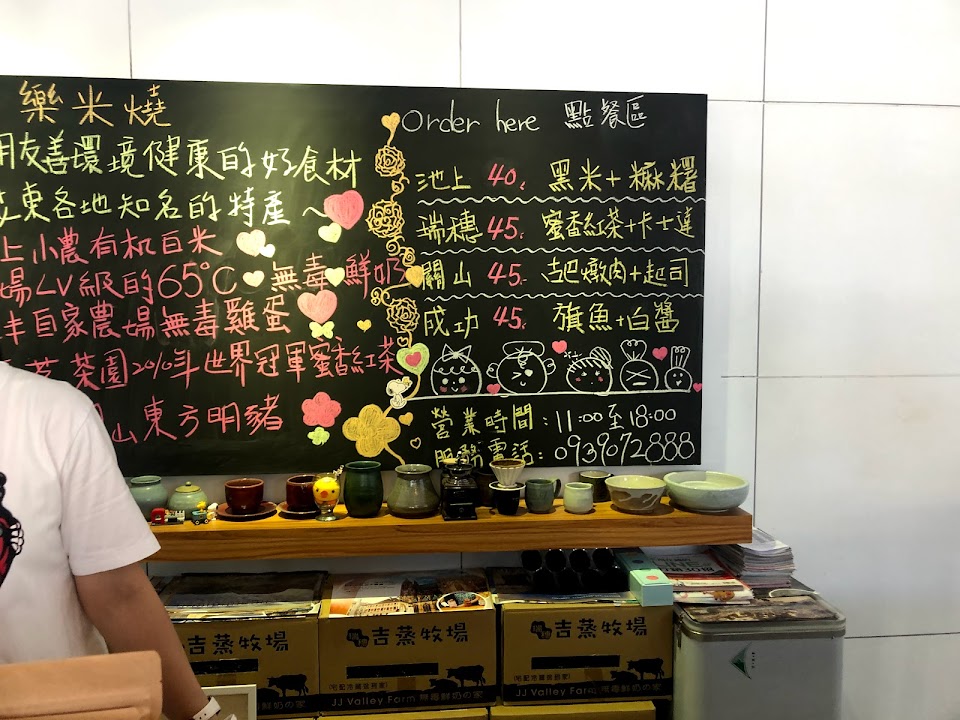 樂米燒
用友善環境健康的好食材
東各地知名的特產~
上小農有机白米
場LV級的65°C 無毒鮮奶
自家農場無毒雞蛋
茶園2010年世界冠軍蜜香紅茶
山東方明豬
Order here 點餐區
池上 40. 黑米+麻糬
瑞穗 45. 蜜香紅茶+卡士達
關山 45. 燉肉+起司
成功 45. 旗魚+白醬
營業時間:11:00至18:00
服務電話:0939072888
吉蒸牧場
吉蒸牧場
(宅配冷藏服務家)
JJ Valley Farm 無毒鮮奶の家
吉蒸牧場
JJ Valley Farm 無毒鮮奶の家